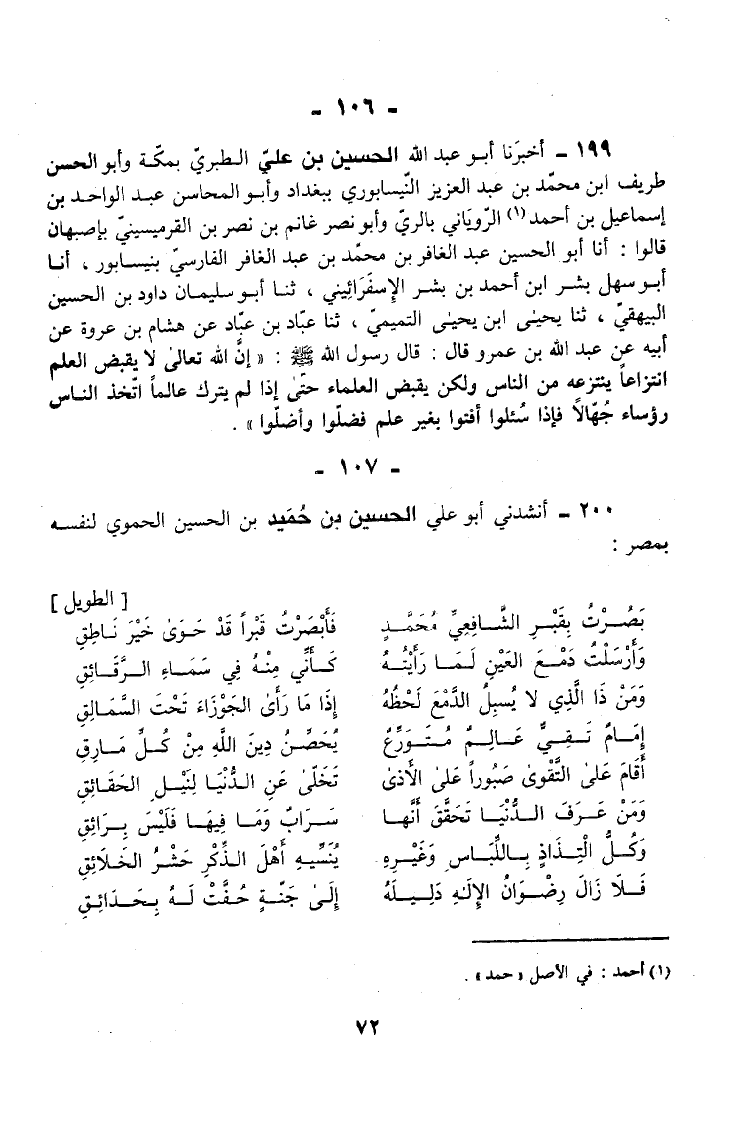 - ١٠٦ -
١٩٩ - أخبرَنا أبو عبد الله الحسين بن عليّ الطبريّ بمكّة وأبو الحسن
طريف ابن محمّد بن عبد العزيز النّيسابوري ببغداد وأبو المحاسن عبد الواحد بن
إسماعيل بن أحمد (١) الرّويَاني بالريّ وأبو نصر غانم بن نصر بن القرميسينيّ بإصبهان
قالوا : أنا أبو الحسين عبد الغافر بن محمّد بن عبد الغافر الفارسيّ بنيسابور ، أنا
أبو سهل بشر ابن أحمد بن بشر الإسفَرائيني ، ثنا أبو سليمان داود بن الحسين
البيهقيّ ، ثنا يحيىٰ ابن يحيىٰ التميميّ ، ثنا عبّاد بن عبّاد عن هشام بن عروة عن
أبيه عن عبد الله بن عمرو قال : قال رسول الله ﷺ : « إنَّ الله تعالىٰ لا يقبض العلم
انتزاعاً ينتزعه من الناس ولكن يقبض العلماء حتّىٰ إذا لم يترك عالماً اتّخذ الناس
رؤساء جُهّالاً فإذا سُئلوا أفتوا بغير علم فضلّوا وأضلّوا » .
- ١٠٧ -
٢٠٠ - أنشدني أبو علي الحسين بن حُمَيد بن الحسين الحموي لنفسه
بمصر :
[ الطويل ]
بَصُرْتُ بِقَبْرِ الشَّافِعِيِّ مُحَمَّدٍ فَأَبْصَرْتُ قَبْراً قَدْ حَوَىٰ خَيْرَ نَاطِقِ
وَأَرْسَلْتُ دَمْعَ العَيْنِ لَمَا رَأَيْتُهُ كَأَنِّي مِنْهُ فِي سَمَاءِ الرَّقَائِقِ
وَمَنْ ذَا الَّذِي لا يُسبِلُ الدَّمْعَ لَحْظُهُ إِذَا مَا رَأَىٰ الجَوْزَاءَ تَحْتَ السَّمَالِقِ
إِمَامٌ تَقِيٌّ عَالِمٌ مُتَوَرِّعٌ يُحَصِّنُ دِينَ اللَّهِ مِنْ كُلِّ مَارِقِ
أَقَامَ عَلىٰ التَّقْوىٰ صَبُوراً عَلىٰ الأَذىٰ تَخَلّىٰ عَنِ الدُّنْيَا لِنَيْلِ الحَقَائِقِ
وَمَنْ عَرَفَ الدُّنْيَا تَحَقَّقَ أَنَّهَا سَرَابٌ وَمَا فِيهَا فَلَيْسَ بِرَائِقِ
وَكُلُّ الْتِذَاذٍ بِاللِّبَاسِ وَغَيْرِهِ يُنَسِّيهِ أَهْلَ الذِّكْرِ حَشْرُ الخَلائِقِ
فَلا زَالَ رِضْوَانُ الإِلَهِ دَلِيلَهُ إِلَىٰ جَنَّةٍ حُفَّتْ لَهُ بِحَدَائِقِ
(١) أحمد : في الأصل «حمد» .
٧٢